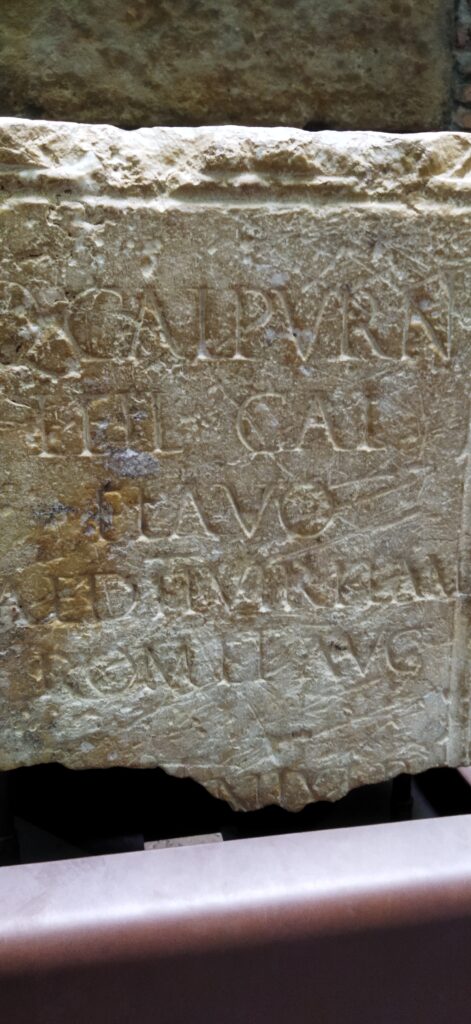 CALPVRN
FIL GAL
FLAVO
AED II VIR FLAM
ROM ET AVG